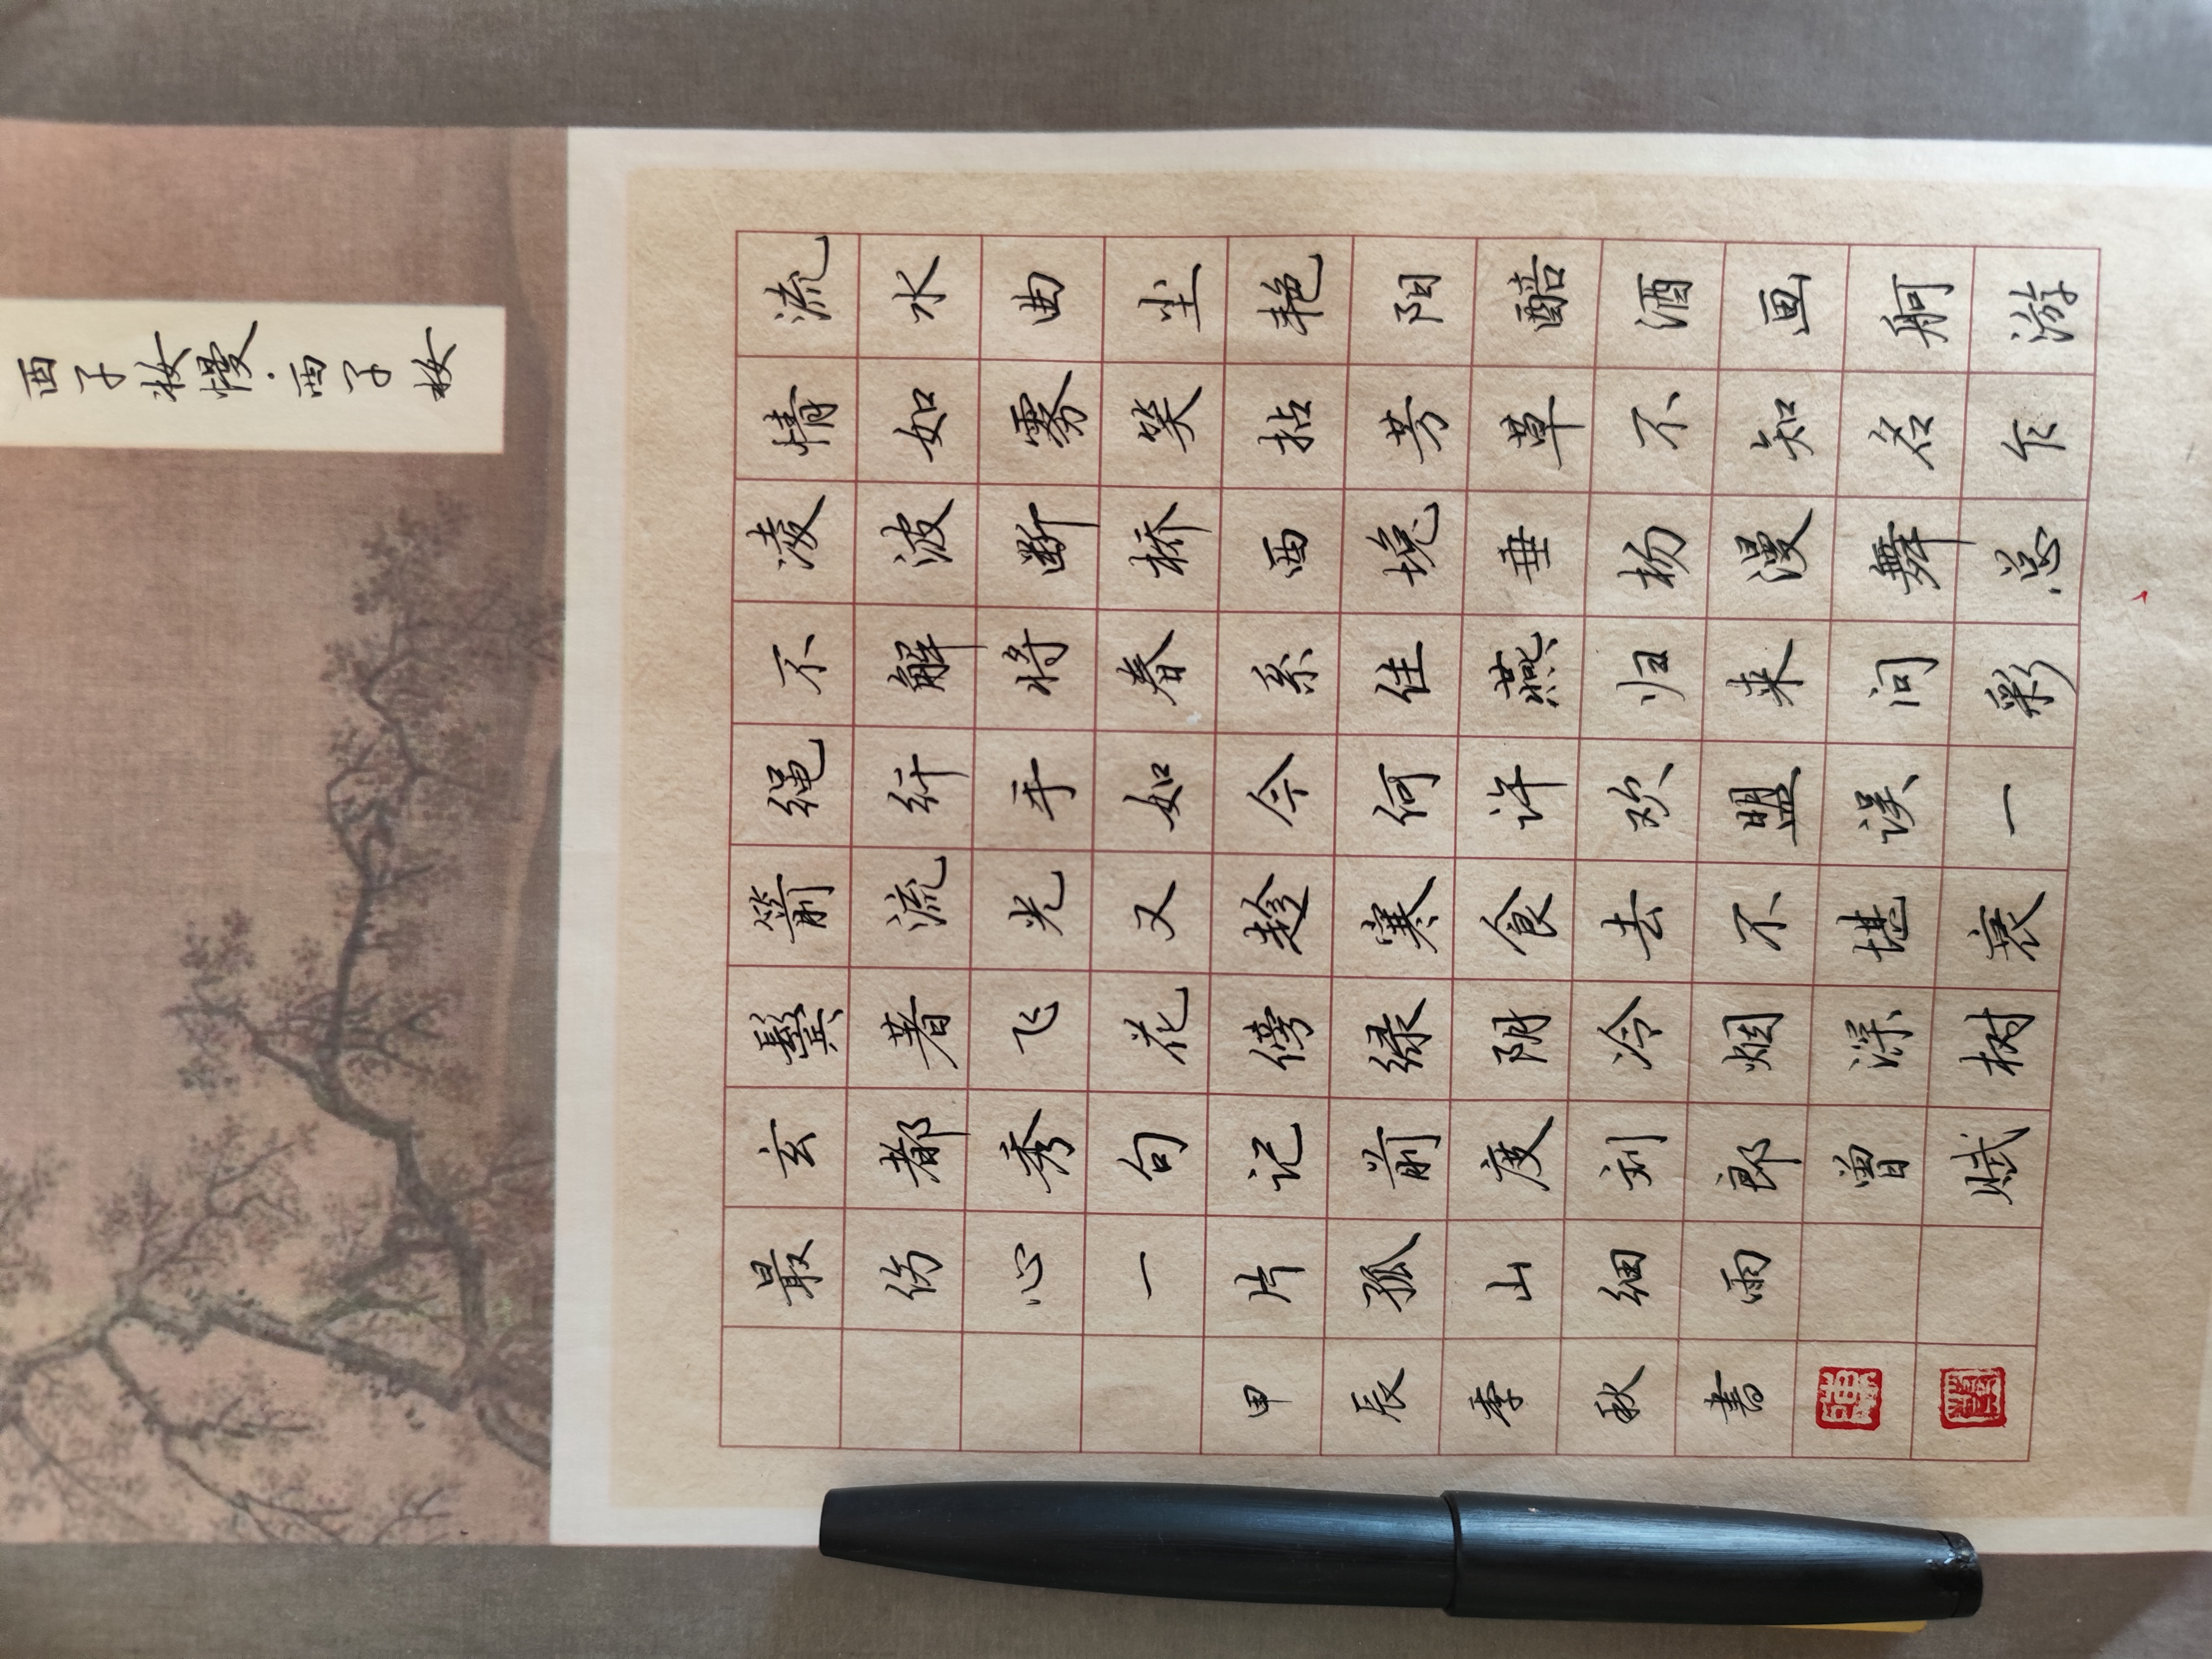 西子妆慢·西子妆
流水曲尘艳阳醅酒画舸游
情如雾笑拈芳草不知名乍
凌波断桥西堍垂杨漫舞总
不解将春系住燕归来问彩
绳纤手如今何许欢盟误一
箭流光又趁寒食去不堪衰
鬓著飞花傍绿阴冷烟深树
玄都秀句记前度刘郎曾赋
最伤心一片孤山细雨
甲辰季秋书